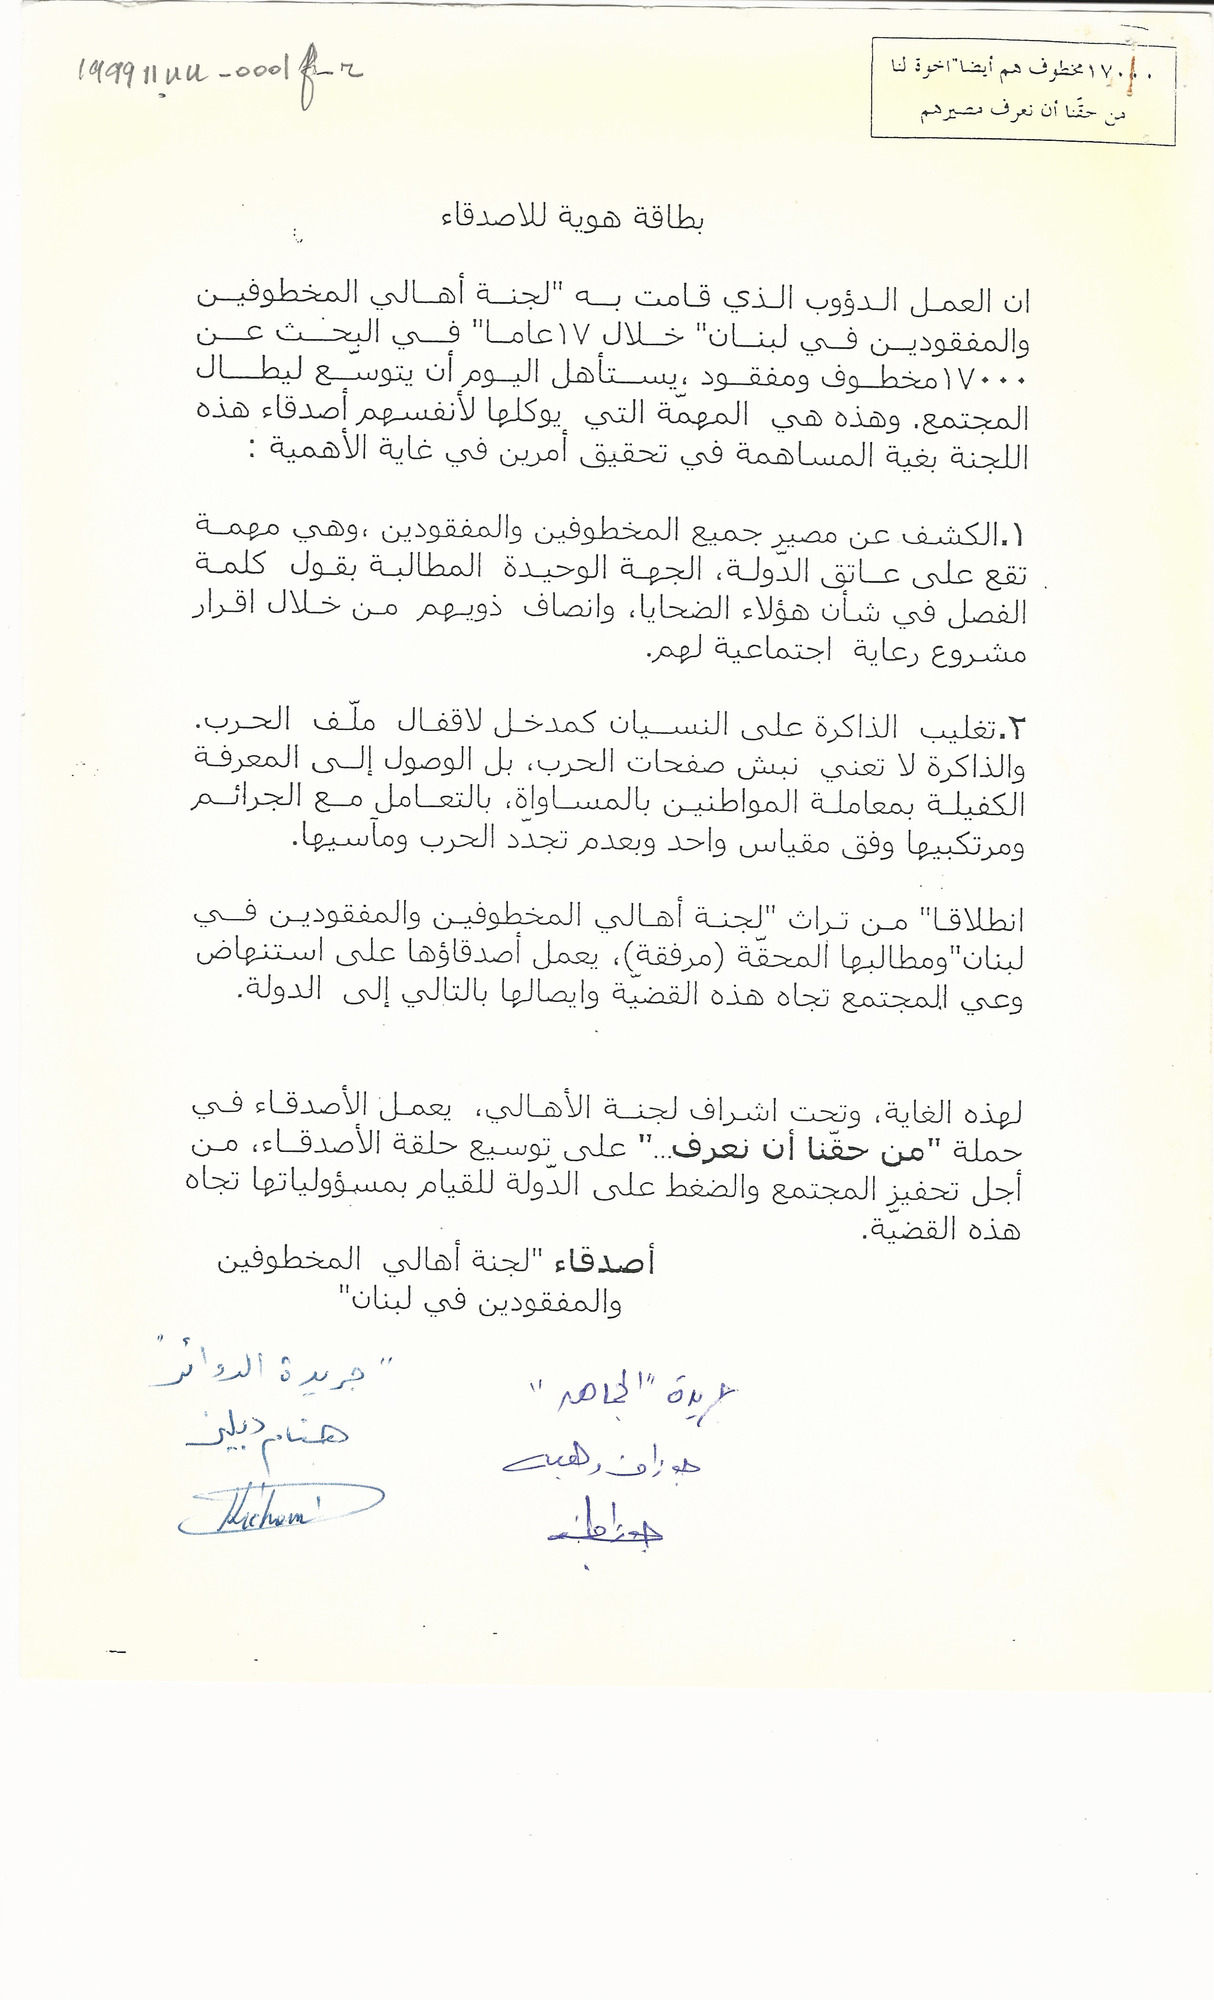 ١٧٠٠٠ مخطوف هم أيضا" اخوة لنا
من حقّنا أن نعرف مصيرهم
بطاقة هوية للاصدقاء
ان العمل الدؤوب الذي قامت به "لجنة أهالي المخطوفين
والمفقودين في لبنان" خلال ١٧عاما" في البحث عن
١٧٠٠٠مخطوف ومفقود ،يستأهل اليوم أن يتوسّع ليطال
المجتمع. وهذه هي المهمّة التي يوكلها لأنفسهم أصدقاء هذه
اللجنة بغية المساهمة في تحقيق أمرين في غاية الأهمية :
١.الكشف عن مصير جميع المخطوفين والمفقودين ،وهي مهمة
تقع على عاتق الدّولة، الجهة الوحيدة المطالبة بقول كلمة
الفصل في شأن هؤلاء الضحايا، وانصاف ذويهم من خلال اقرار
مشروع رعاية اجتماعية لهم.
٢.تغليب الذاكرة على النسيان كمدخل لاقفال ملّف الحرب.
والذاكرة لا تعني نبش صفحات الحرب، بل الوصول إلى المعرفة
الكفيلة بمعاملة المواطنين بالمساواة، بالتعامل مع الجرائم
ومرتكبيها وفق مقياس واحد وبعدم تجدّد الحرب ومآسيها.
انطلاقا" من تراث "لجنة أهالي المخطوفين والمفقودين في
لبنان"ومطالبها المحقّة (مرفقة)، يعمل أصدقاؤها على استنهاض
وعي المجتمع تجاه هذه القضيّة وايصالها بالتالي إلى الدولة.
لهذه الغاية، وتحت اشراف لجنة الأهالي، يعمل الأصدقاء في
حملة "من حقّنا أن نعرف..." على توسيع حلقة الأصدقاء، من
أجل تحفيز المجتمع والضغط على الدّولة للقيام بمسؤولياتها تجاه
هذه القضيّة.
أصدقاء "لجنة أهالي المخطوفين
والمفقودين في لبنان"
"جريدة الدوائر"